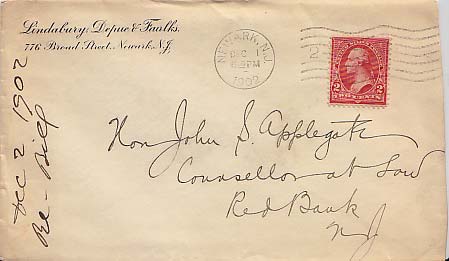 Lindabury, Depue & Faulks.
776 Broad Street, Newark, N.J.
NEWARK, N.J.
DEC 1
PM
1902
2
UNITED STATES
2 2
TWO CENTS
Hon John S. Applegate
Counsellor at Law
Red Bank
N.J.
Dec 2 1902
Re- Bill